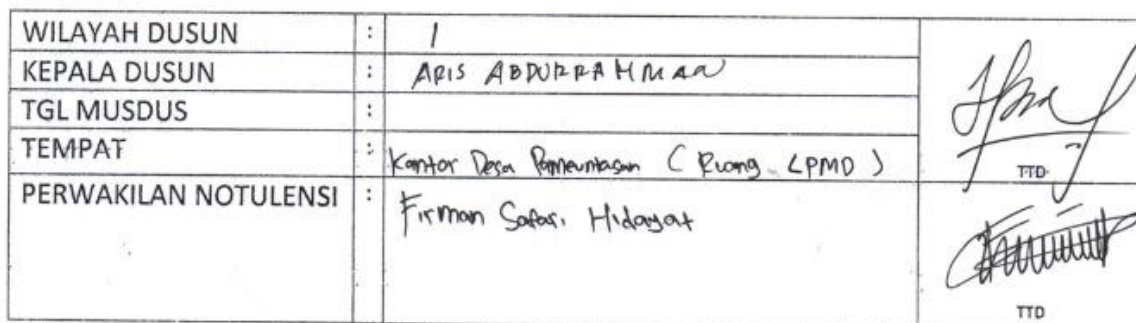 WILAYAH DUSUN : 1
KEPALA DUSUN : ARIS ABDURRAHMAN
TGL MUSDUS :
TEMPAT : Kantor Desa Pameuntasan ( Ruang LPMD )
TTD
PERWAKILAN NOTULENSI : Firman Safari Hidayat
TTD